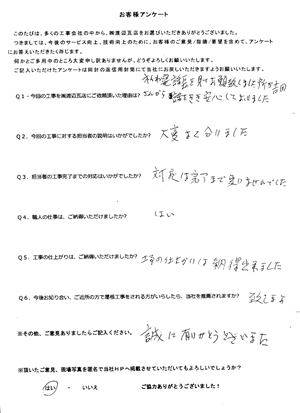 お客様アンケート
このたびは、多くの工事会社の中から、㈲渡辺瓦店をお選びいただきありがとうございました。
つきましては、今後のサービス向上、技術向上のために、お客様のご意見/指摘/要望を含めて、アンケート
にお答えいただきたく存じます。
何かとご多用中のところ大変申し訳ありませんが、どうぞよろしくお願いいたします。
ご記入いただけたアンケートは同封の返信用封筒にて当社にお戻しいただきますようお願いいたします。
Q1・今回の工事を㈲渡辺瓦店にご依頼頂いた理由は?
電話 を見てお願い しました 所 吉田
さんから 話をきき安心して おりました
Q2.今回の工事に対する担当者の説明はいかがでしたか?
大変よく分りました
Q3.担当者の工事完了までの対応はいかがでしたか?
対応は完了まで 悪いませんでした
Q4.職人の仕事は、ご納得いただけましたか?
はい
Q5.工事の仕上がりは、ご納得いただけましたか?
工事の仕上がりは 納得出来ました
Q6.今後お知り合い、ご近所の方で屋根工事をされる方がいらしたら、当社を推薦されますか?
致します
※その他、ご意見ありましたらご記入ください。
誠に有がとうございました
※頂いたご意見、現場写真を匿名で当社HPへ掲載させていただいてもよろしいでしょうか?
はい ・ いいえ ご協力ありがとうございました!